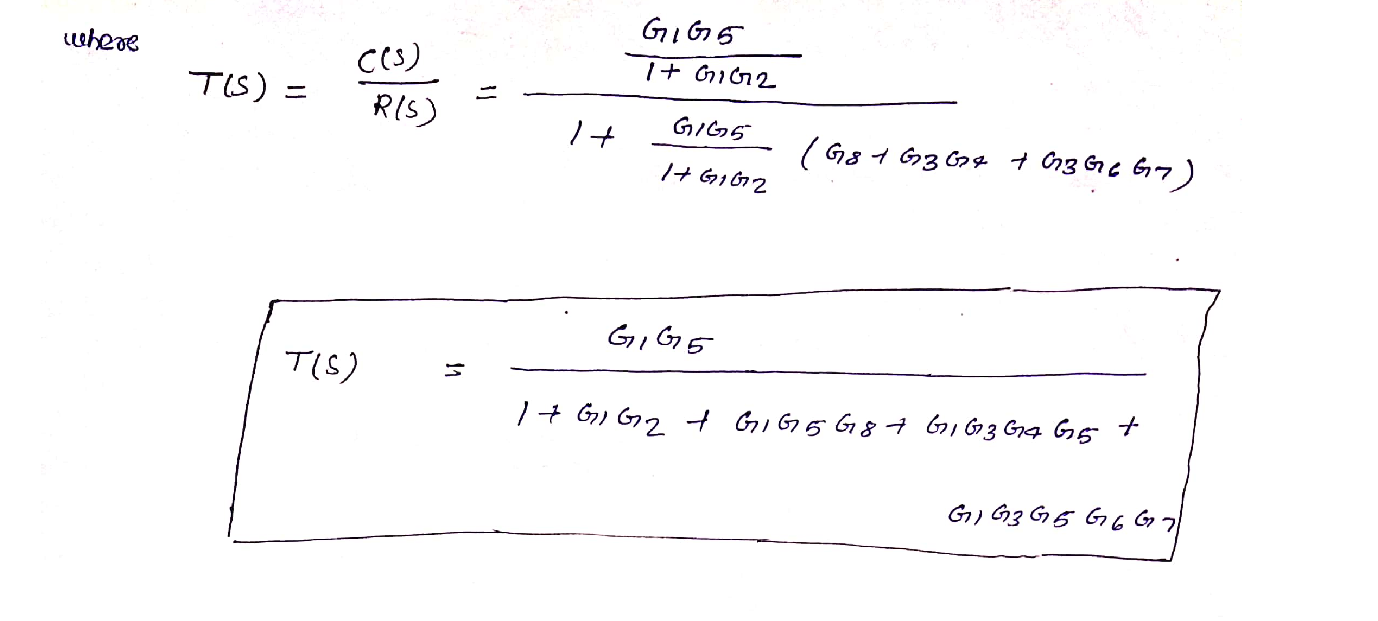 where
T(S) = C(S) / R(S) = (G1G5 / 1 + G1G2) / (1 + G1G5 / 1 + G1G2 (G8 + G3G4 + G3G6G7))
T(S) = G1G5 / 1 + G1G2 + G1G5G8 + G1G3G4G5 +
G1G3G5G6G7